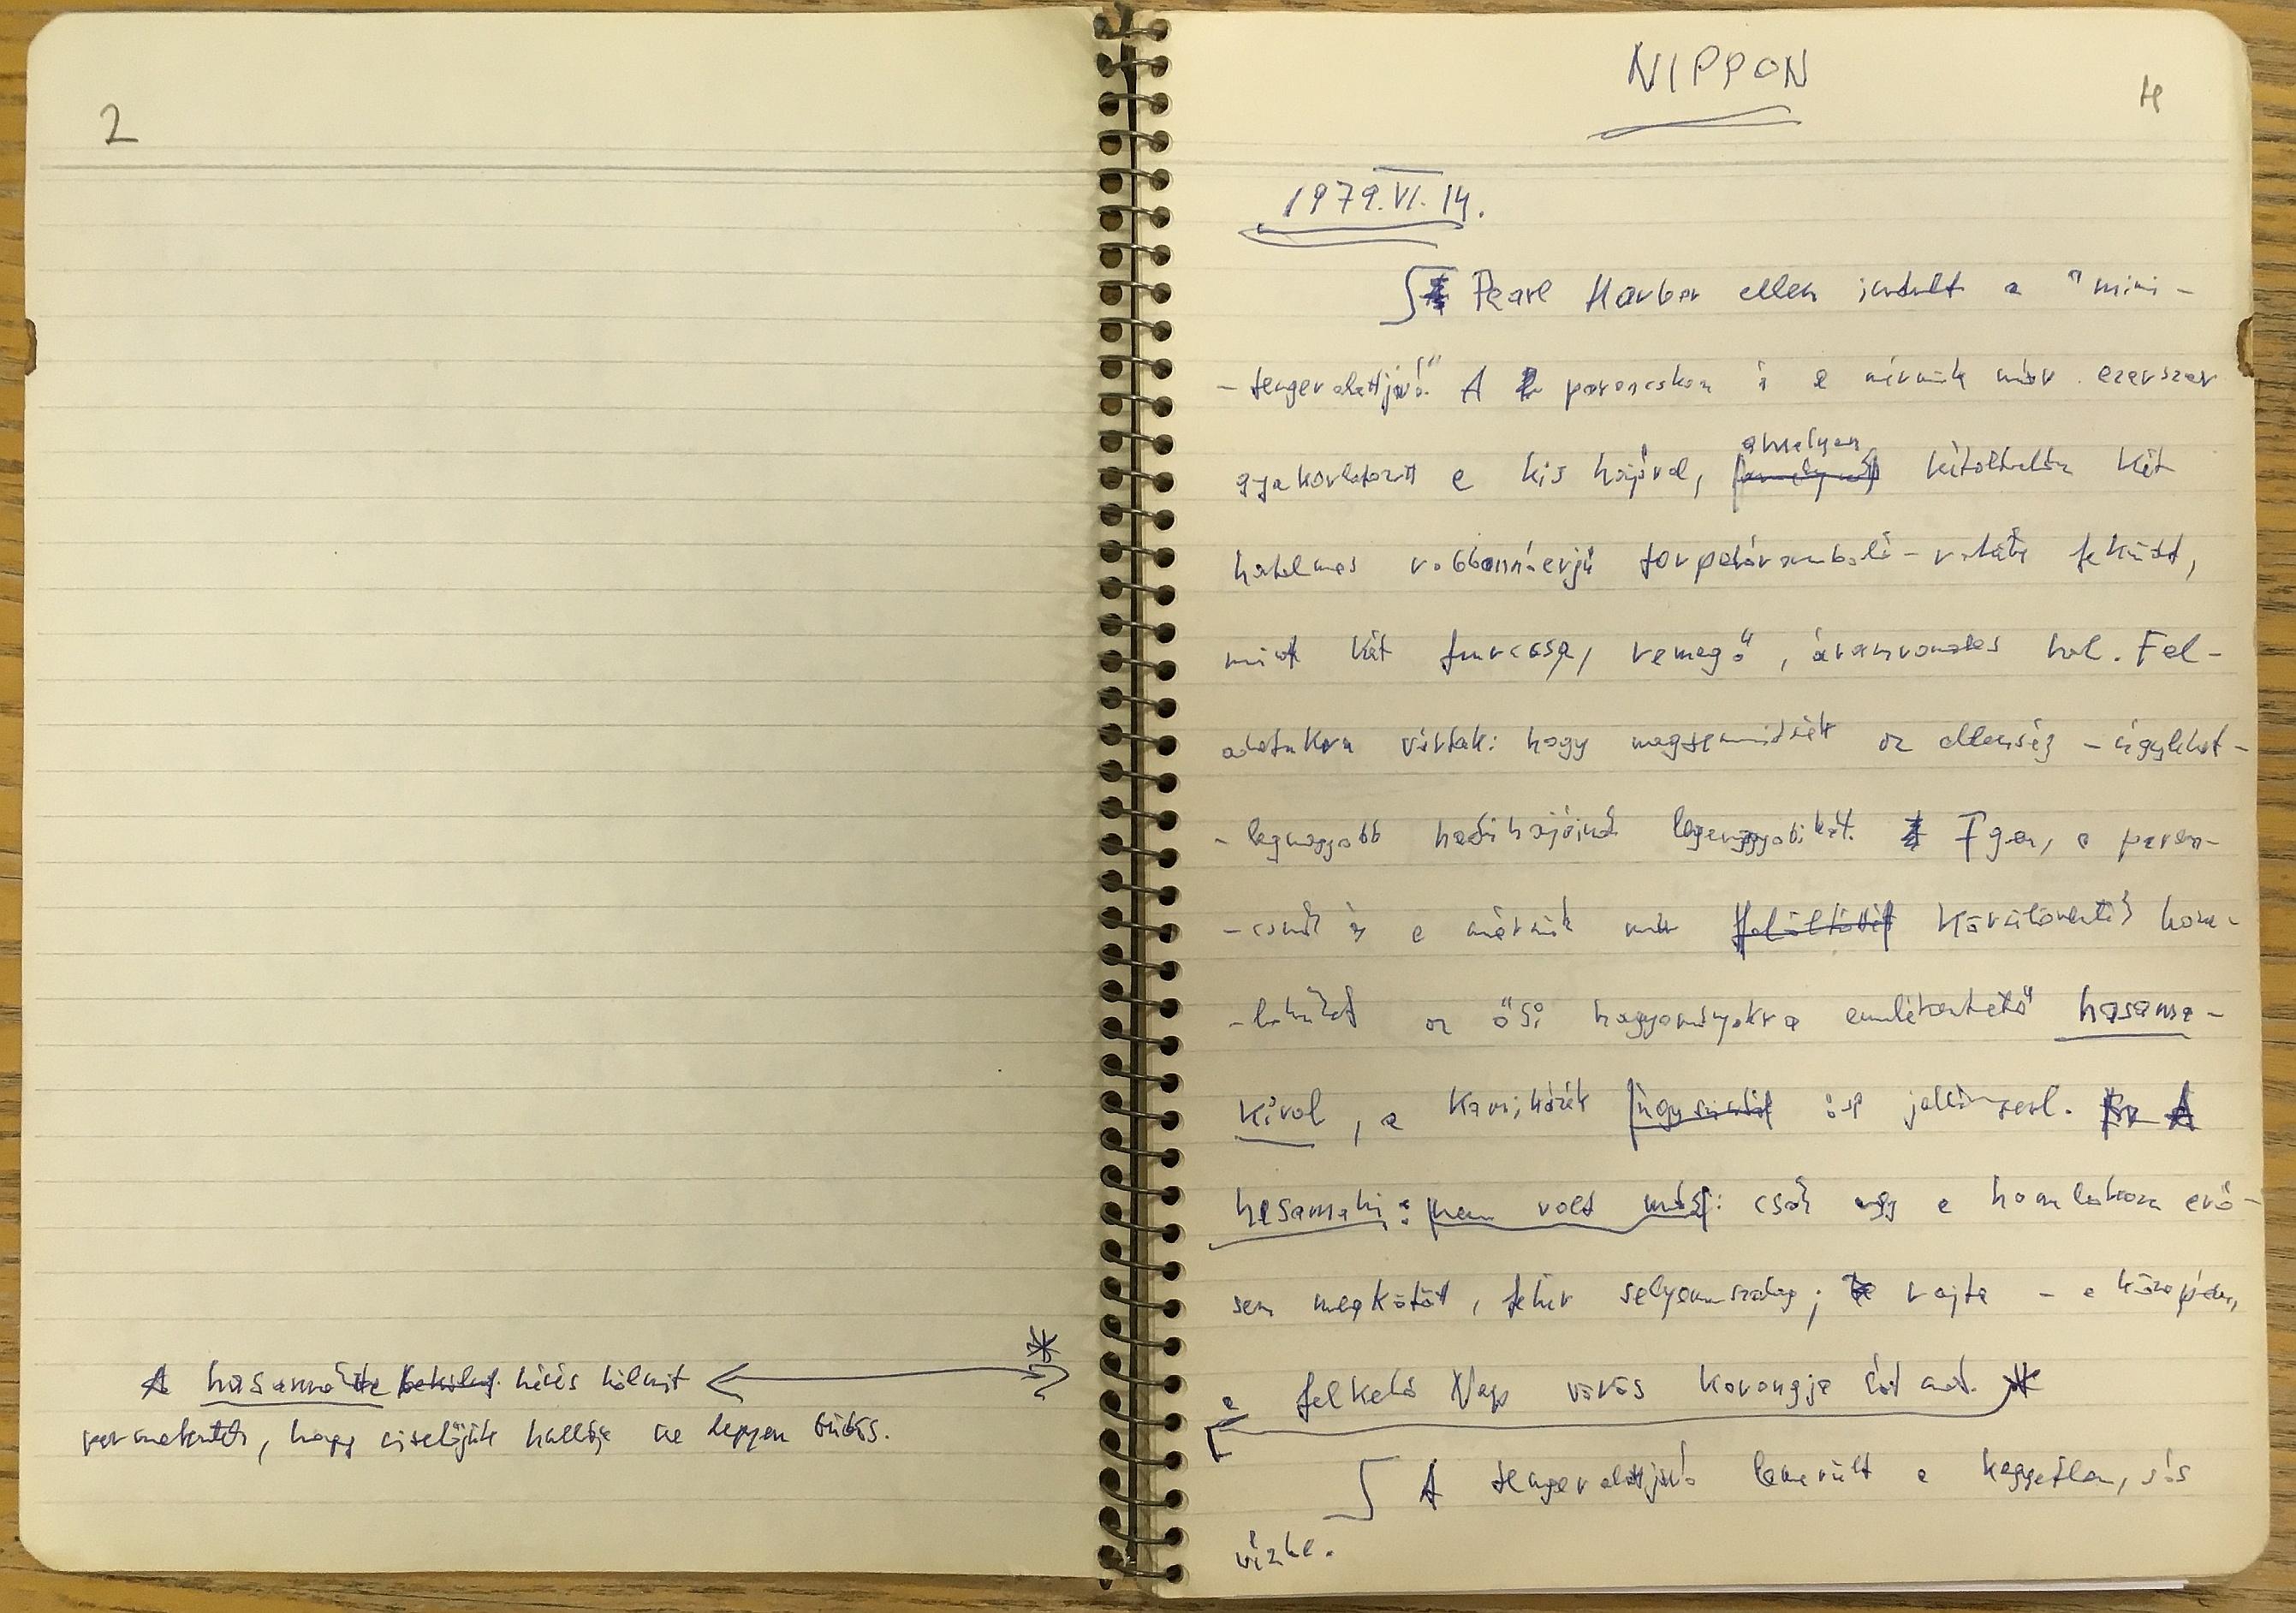 2
A hasamakit kölnit
permetezték, hogy viselőjük halála ne legyen bűzös.
NIPPON
4
1979. VI. 14.
Pearl Harbor ellen indult a "mini-
-tengeralattjáró." A parancsnok és a mérnök már ezerszer
gyakorlatozott a kis hajóval, amelyen kétoldalán két
hatalmas robbanóerejű torpedóromboló-rakéta feküdt,
mint két furcsa, remegő, áramvonalas hal. Fel-
adatukra vártak: hogy megsemmisítsék az ellenség - úgylehet -
- legnagyobb hadihajóinak legnagyobbikát. Igen, a paran-
-csnok és a mérnök már körülövezték hom-
-lokukat az ősi hagyományokra emlékeztető hasama-
kival, a kamikázék ősi jelképével.
hasamaki: nem volt más: csak egy a homlokon erő-
sen megkötött, fehér selyemszalag; rajta - a közepén,
a felkelő Nap vörös korongja izzott. *
A tengeralattjáró lemerült a kegyetlen, sós
vízbe.